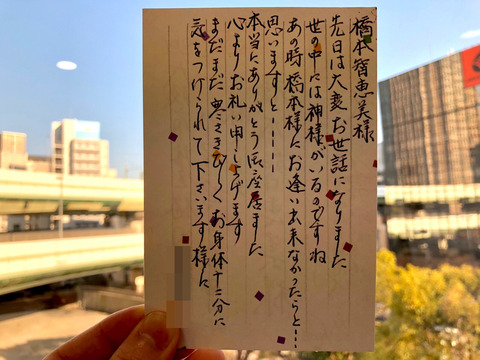 橋本智恵美様
先日は大変お世話になりました
世の中には神様がいるのですね
あの時橋本様にお逢い出来なかったらと…
思いますと……
本当にありがとう御座居ました
心よりお礼申し上げます
まだまだ寒さきびしく お身体十二分に
気をつけられて下さいます様に